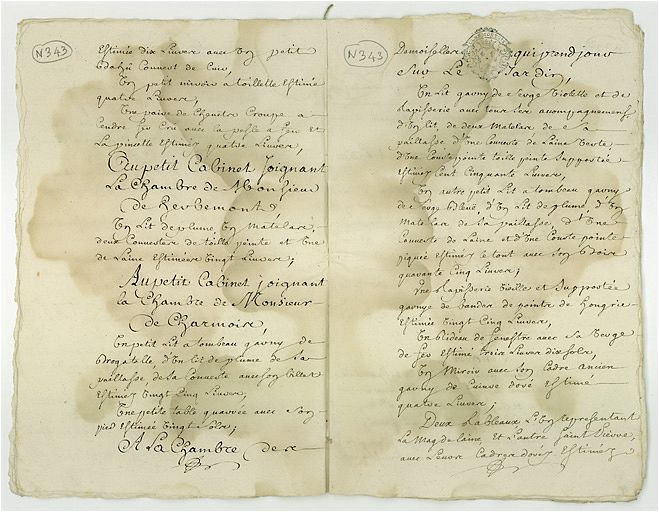 N343
Estimée dix Livres avec Un petit
Couvert de Cuir,
Un petit miroir a toillette Estimé
quatre Livres,
Une paire de Chenetre Croupe a
Cendre feu Cru avec la pesle a feu et
La pincette Estimez quatre Livres,
Au petit Cabinet Joignant
La Chambre de Monsieur
de Herbemont,
Un Lit de plume, Un Matelas,
deux Couvertes de toille peinte et Une
de Laine Estimées Vingt Livres;
Au petit Cabinet Joignant
la Chambre de Monsieur
de Charmois,
Un petit Lit a tombeau garny de
Brogatelle d'Un lit de plume de Sa
paillasse, de sa Couverte avec son
Estimez Vingt Cinq Livres,
Une petite table quarrée avec Son
pied Estimée Vingt Sols;
A La Chambre des
N343
Demoiselles qui prend jour
Sur Le Jardin,
Un Lit garny de Serge Violette et de
tapisserie avec tous ses acompagnements
d'Un lit, de deux Matelas de Sa
paillasse d'Une Couverte de Laine Verte
d'Une Courtepointe toille peinte Supportée
Estimez Cent Cinquante Livres,
Un autre petit Lit a tombeau garny
de Serge Bleue, d'Un Lit de plume, d'Un
Matelas de Sa paillasse d'Une
Couverte de Laine et d'Une Courte pointe
piquée Estimez le tout avec son
quarante Cinq Livres;
Une tapisserie Vieille et Supportée
garnye de bandes de pointe de Hongrie
Estimée Vingt Cinq Livres,
Un Rideau de fenestre avec sa Verge
de fer Estimé treize Livres dix sols,
Un Miroir avec son Cadre ancien
garny de Cuivre doré Estimé
quatre Livres;
Deux tableaux L'Un representant
La Magdelaine et L'autre Saint Pierre,
avec Leurs Cadres dorez Estimez